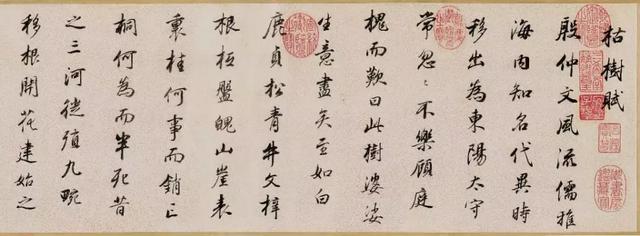 枯樹賦
殷仲文風流儒雅
海内知名代異時
移出為東陽太守
常忽〻不樂顧庭
槐而歎曰此樹婆娑
生意盡矣至如白
鹿貞松青牛文梓
根柢盤魄山崖表
裏桂何事而銷亡
桐何為而半死昔
之三河徙殖九畹
移根開花建始之